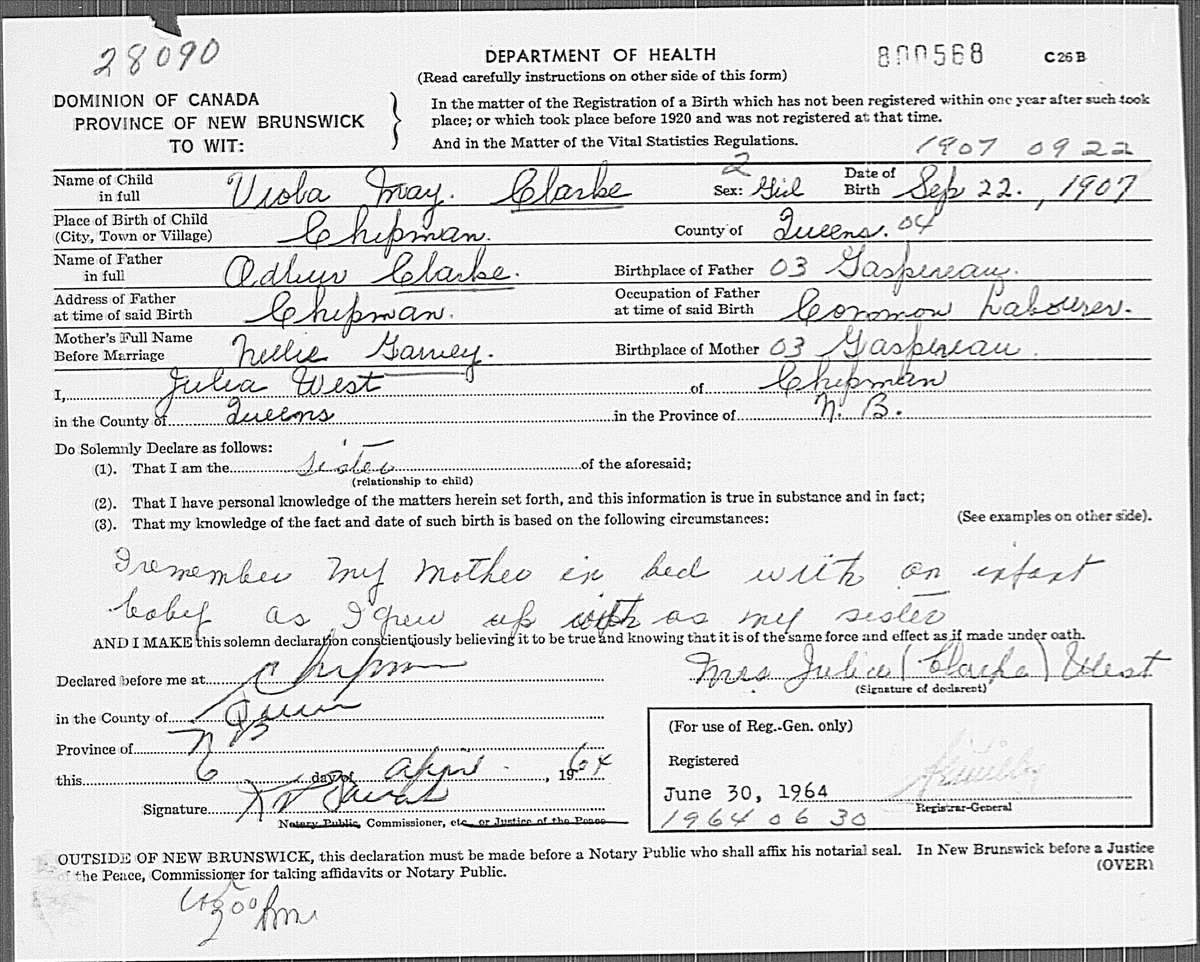 28090
DEPARTMENT OF HEALTH
800568
C26B
(Read carefully instructions on other side of this form)
DOMINION OF CANADA
PROVINCE OF NEW BRUNSWICK
TO WIT:
In the matter of the Registration of a Birth which has not been registered within one year after such took
place; or which took place before 1920 and was not registered at that time.
And in the Matter of the Vital Statistics Regulations.
1907 09 22
Name of Child in full Viola May. Clarke Sex: 2 Girl Date of Birth Sep 22., 1907
Place of Birth of Child (City, Town or Village) Chipman. County of Queens. 04
Name of Father in full Clarke. Birthplace of Father 03 Gaspereau.
Address of Father at time of said Birth Chipman. Occupation of Father at time of said Birth Common Labourer.
Mother's Full Name Before Marriage Nellie Garvey. Birthplace of Mother 03 Gaspereau.
I, Julia West of Chipman
in the County of Queens in the Province of N. B.
Do Solemnly Declare as follows:
(1). That I am the sister of the aforesaid;
(relationship to child)
(2). That I have personal knowledge of the matters herein set forth, and this information is true in substance and in fact;
(3). That my knowledge of the fact and date of such birth is based on the following circumstances: (See examples on other side).
I remember my mother in bed with an infant
baby as I grew up as my sister
AND I MAKE this solemn declaration conscientiously believing it to be true and knowing that it is of the same force and effect as if made under oath.
Declared before me at Chipman
Mrs Julia (Clarke) West
(Signature of declarent)
in the County of Queens
Province of N B
this 6 day of April, 1964
Signature
Notary Public, Commissioner, etc., or Justice of the Peace
(For use of Reg.-Gen. only)
Registered
June 30, 1964
Registrar-General
1964 06 30
OUTSIDE OF NEW BRUNSWICK, this declaration must be made before a Notary Public who shall affix his notarial seal. In New Brunswick before a Justice
of the Peace, Commissioner for taking affidavits or Notary Public.
(OVER)